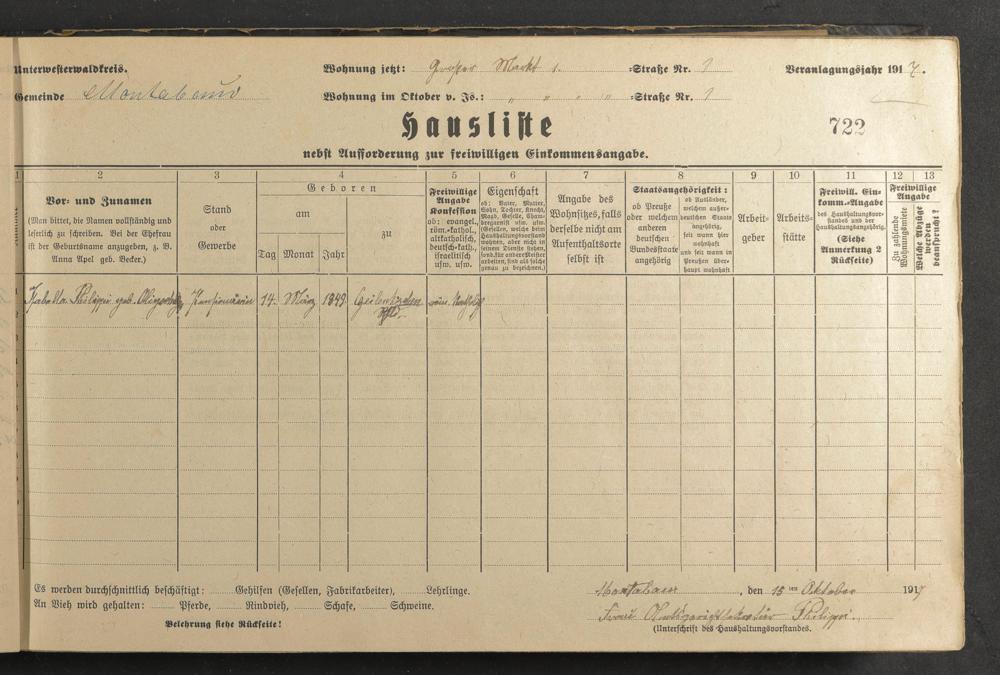 Unterwesterwaldkreis. Wohnung jetzt: Großer Markt 1. =Straße Nr. 1 Veranlagungsjahr 1917.
Gemeinde Montabaur Wohnung im Oktober v. Js.: " " " " =Straße Nr. 1
Hausliste
722
nebst Aufforderung zur freiwilligen Einkommensangabe.
1 2 3 4 5 6 7 8 9 10 11 12 13
Vor- und Zunamen
(Man bittet, die Namen vollständig und
leserlich zu schreiben. Bei der Ehefrau
ist der Geburtsname anzugeben, z. B.
Anna Apel geb. Becker.)
Stand
oder
Gewerbe
Geboren
am
Tag Monat Jahr
zu
Freiwillige
Angabe
Konfession
ob: evangel.,
röm.-kathol.,
altkatholisch,
deutsch-kath.,
israelitisch
usw. usw.
Eigenschaft
ob: Vater, Mutter,
Sohn, Tochter, Knecht,
Magd, Geselle, Cham-
bergarnist usw. usw.
(Gesellen, welche beim
Haushaltungsvorstand
wohnen, aber nicht in
seinem Dienste stehen,
sond. für andere Meister
arbeiten, sind als solche
genau zu bezeichnen.)
Angabe des
Wohnsitzes, falls
derselbe nicht am
Aufenthaltsorte
selbst ist
Staatsangehörigkeit:
ob Preuße
oder welchem
anderen
deutschen
Bundesstaate
angehörig
ob Ausländer,
welchem außer-
deutschen Staate
angehörig,
seit wann hier
wohnhaft
und seit wann in
Preußen über-
haupt wohnhaft
Arbeit-
geber
Arbeits-
stätte
Freiwill. Ein-
komm.-Angabe
des Haushaltungsvor-
standes und der
Haushaltungsangehörig.
(Siehe
Anmerkung 2
Rückseite)
Freiwillige
Angabe
Zu zahlende
Wohnungsmiete
Welche Abzüge
werden
beansprucht?
1 Philippi geb. Pensionärin 14. März 1849 röm.
2
3
4
5
6
7
8
9
10
11
Es werden durchschnittlich beschäftigt: Gehilfen (Gesellen, Fabrikarbeiter), Lehrlinge.
An Vieh wird gehalten: Pferde, Rindvieh, Schafe, Schweine.
Belehrung siehe Rückseite!
Montabaur, den 15ten Oktober 1917
Frau Amtsgerichtssekretär Philippi.
(Unterschrift des Haushaltungsvorstandes.